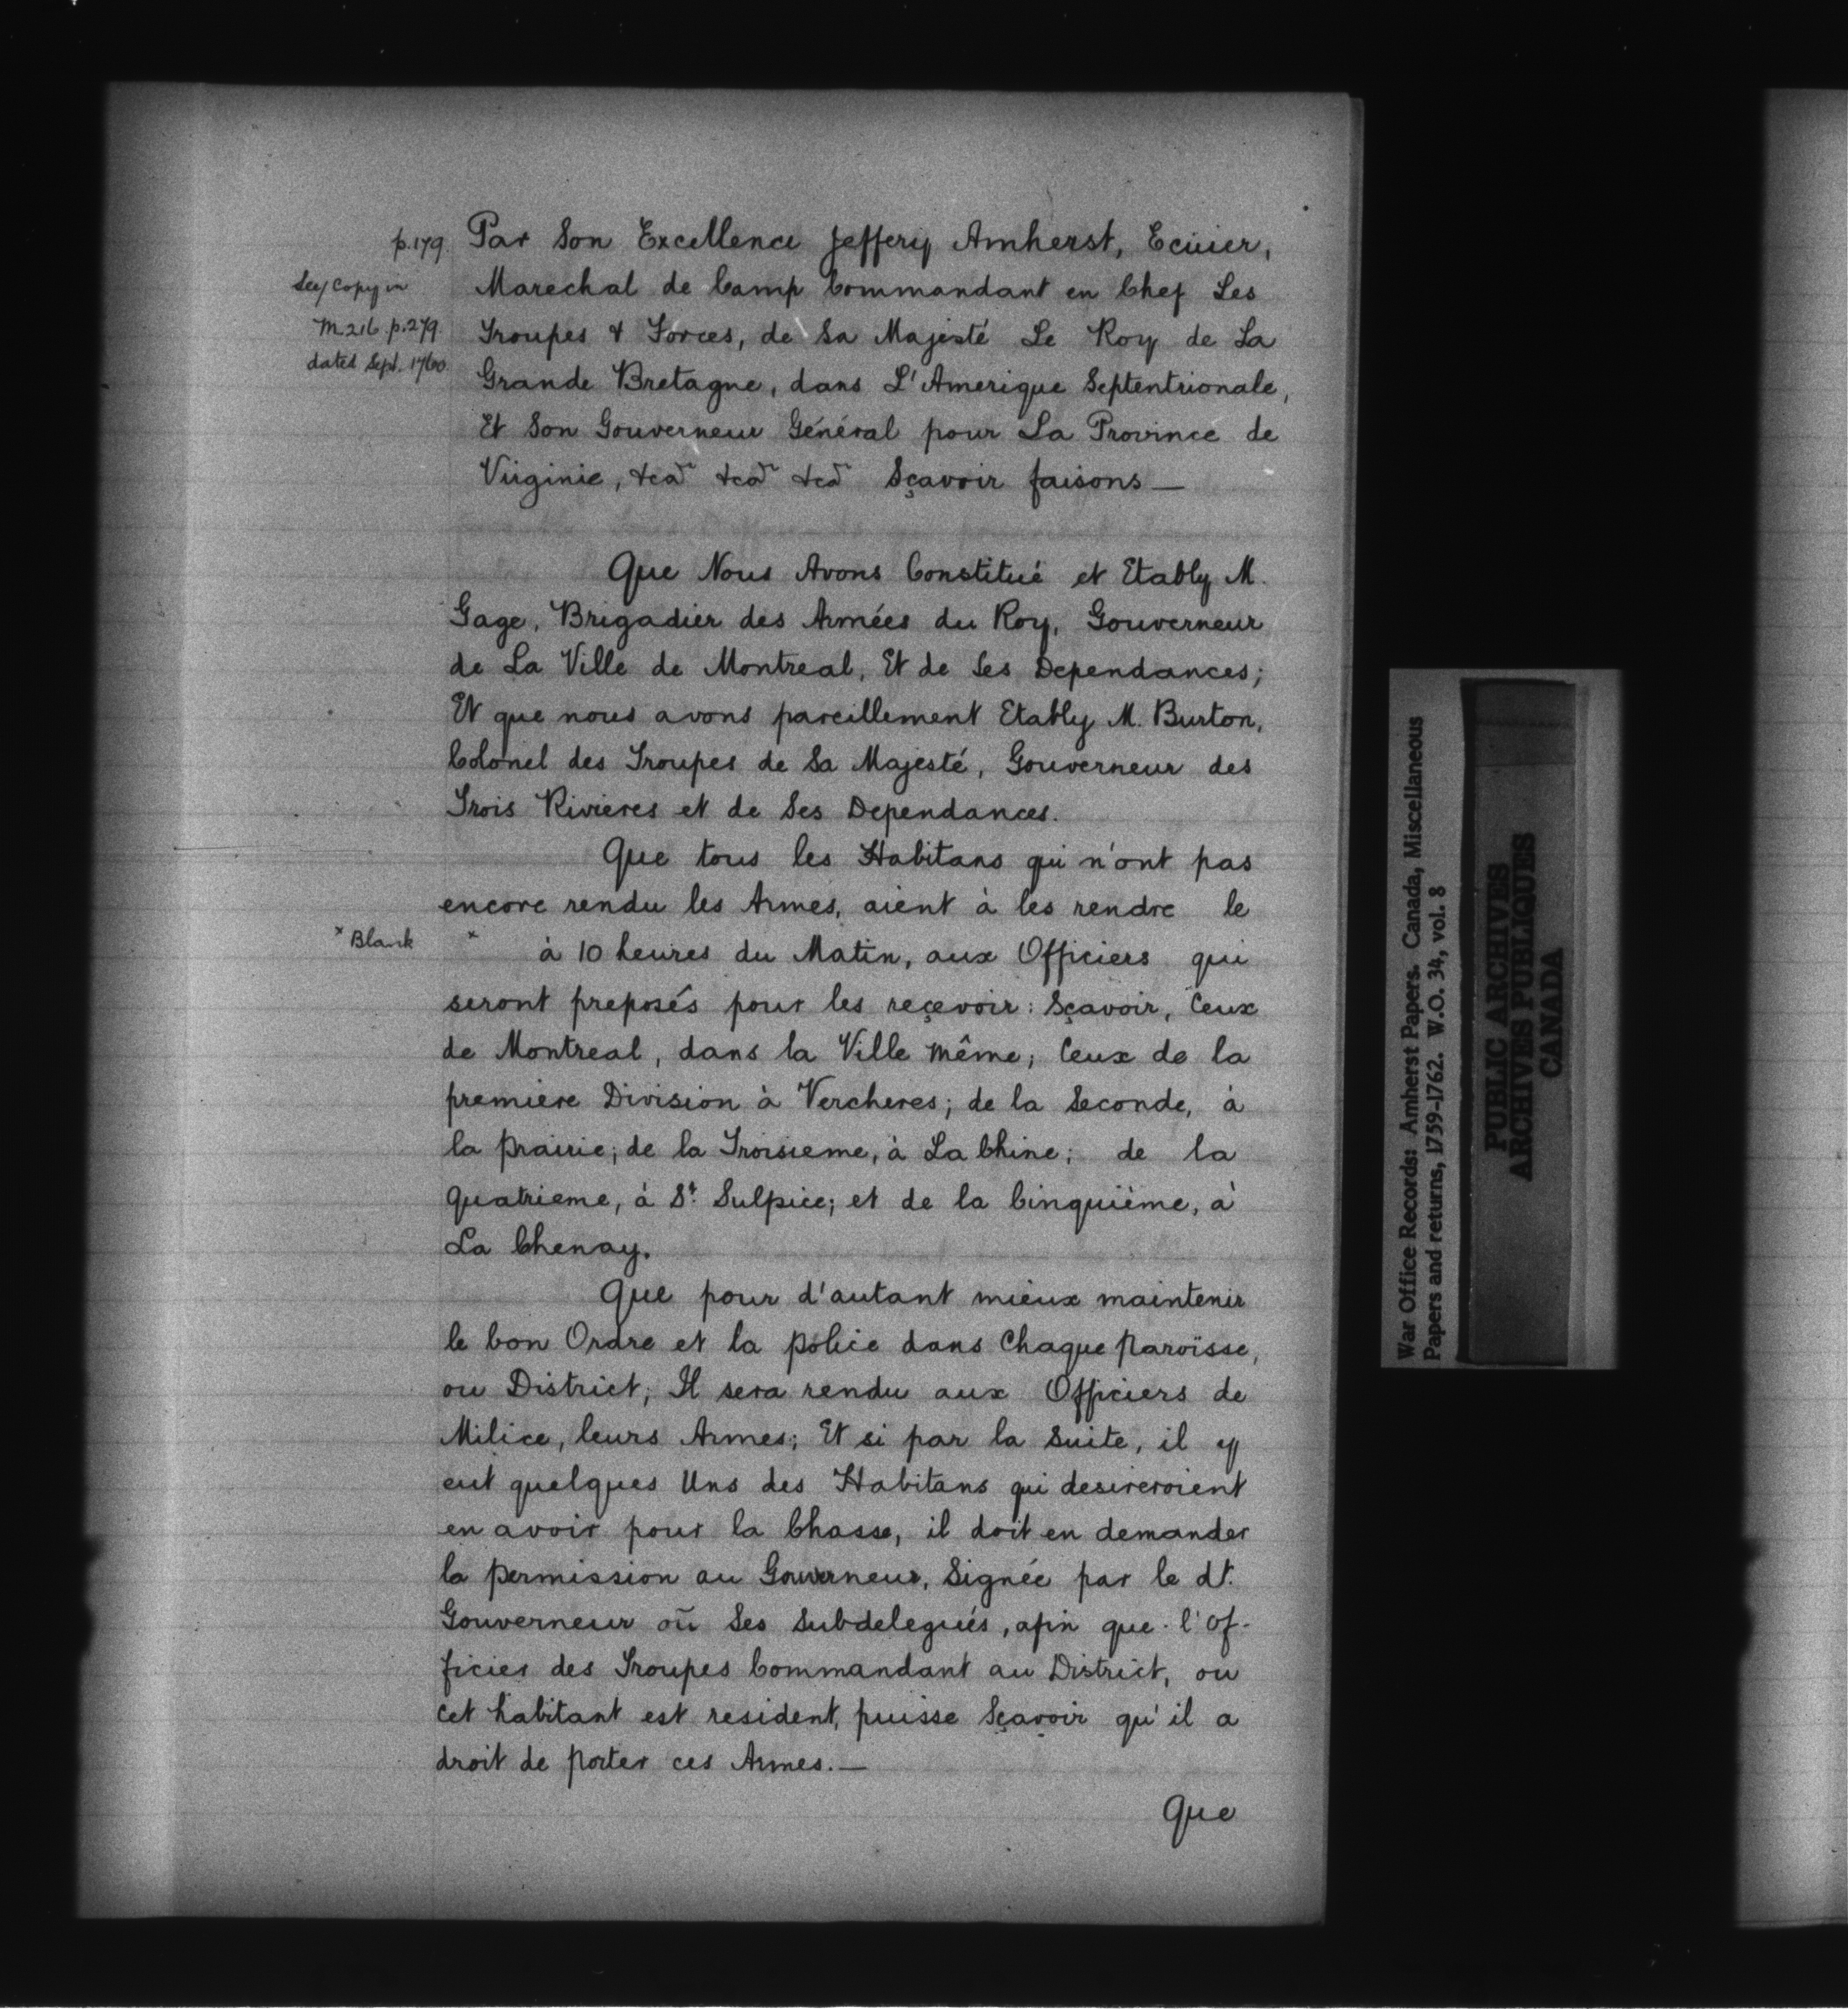 p.179.
See/ Copy in
M. 216. p. 279.
dated Sept. 1760.
Par Son Excellence Jeffery Amherst, Ecüier,
Marechal de Camp Commandant en Chef Les
Troupes & Forces, de Sa Majesté Le Roy de La
Grande Bretagne, dans L'Amerique Septentrionale,
Et Son Gouverneur Général pour La Province de
Virginie, &ca &ca &ca Sçavoir faisons —
Que Nous Avons Constitué et Etably M.
Gage, Brigadier des Armées du Roy, Gouverneur
de La Ville de Montreal, Et de Ses Dependances;
Et que nous avons pareillement Etably M. Burton,
Colonel des Troupes de Sa Majesté, Gouverneur des
Trois Rivieres et de Ses Dependances.
Que tous les Habitans qui n'ont pas
encore rendu les Armes, aient à les rendre le
* Blank
* à 10 heures du Matin, aux Officiers qui
seront preposés pour les reçevoir: Sçavoir, Ceux
de Montreal, dans la Ville même; Ceux de la
premiere Division à Vercheres; de la Seconde, à
la prairie; de la Troisieme, à La Chine; de la
Quatrieme, à St. Sulpice; et de la Cinquiéme, à
La Chenay.
Que pour d'autant mieux maintenir
le bon Ordre et la police dans Chaque paroïsse,
ou District; Il sera rendu aux Officiers de
Milice, leurs Armes; Et si par la Suite, il y
eut quelques Uns des Habitans qui desireroient
en avoir pour la Chasse, il doit en demander
la permission au Gouverneur, Signée par le dt.
Gouverneur oū Ses Subdelegués, afin que l'Of-
ficier des Troupes Commandant au District, ou
cet habitant est resident, puisse Sçavoir qu'il a
droit de porter ces Armes. —
Que
War Office Records: Amherst Papers. Canada, Miscellaneous
Papers and returns, 1759-1762. W.O. 34, vol. 8
PUBLIC ARCHIVES
ARCHIVES PUBLIQUES
CANADA